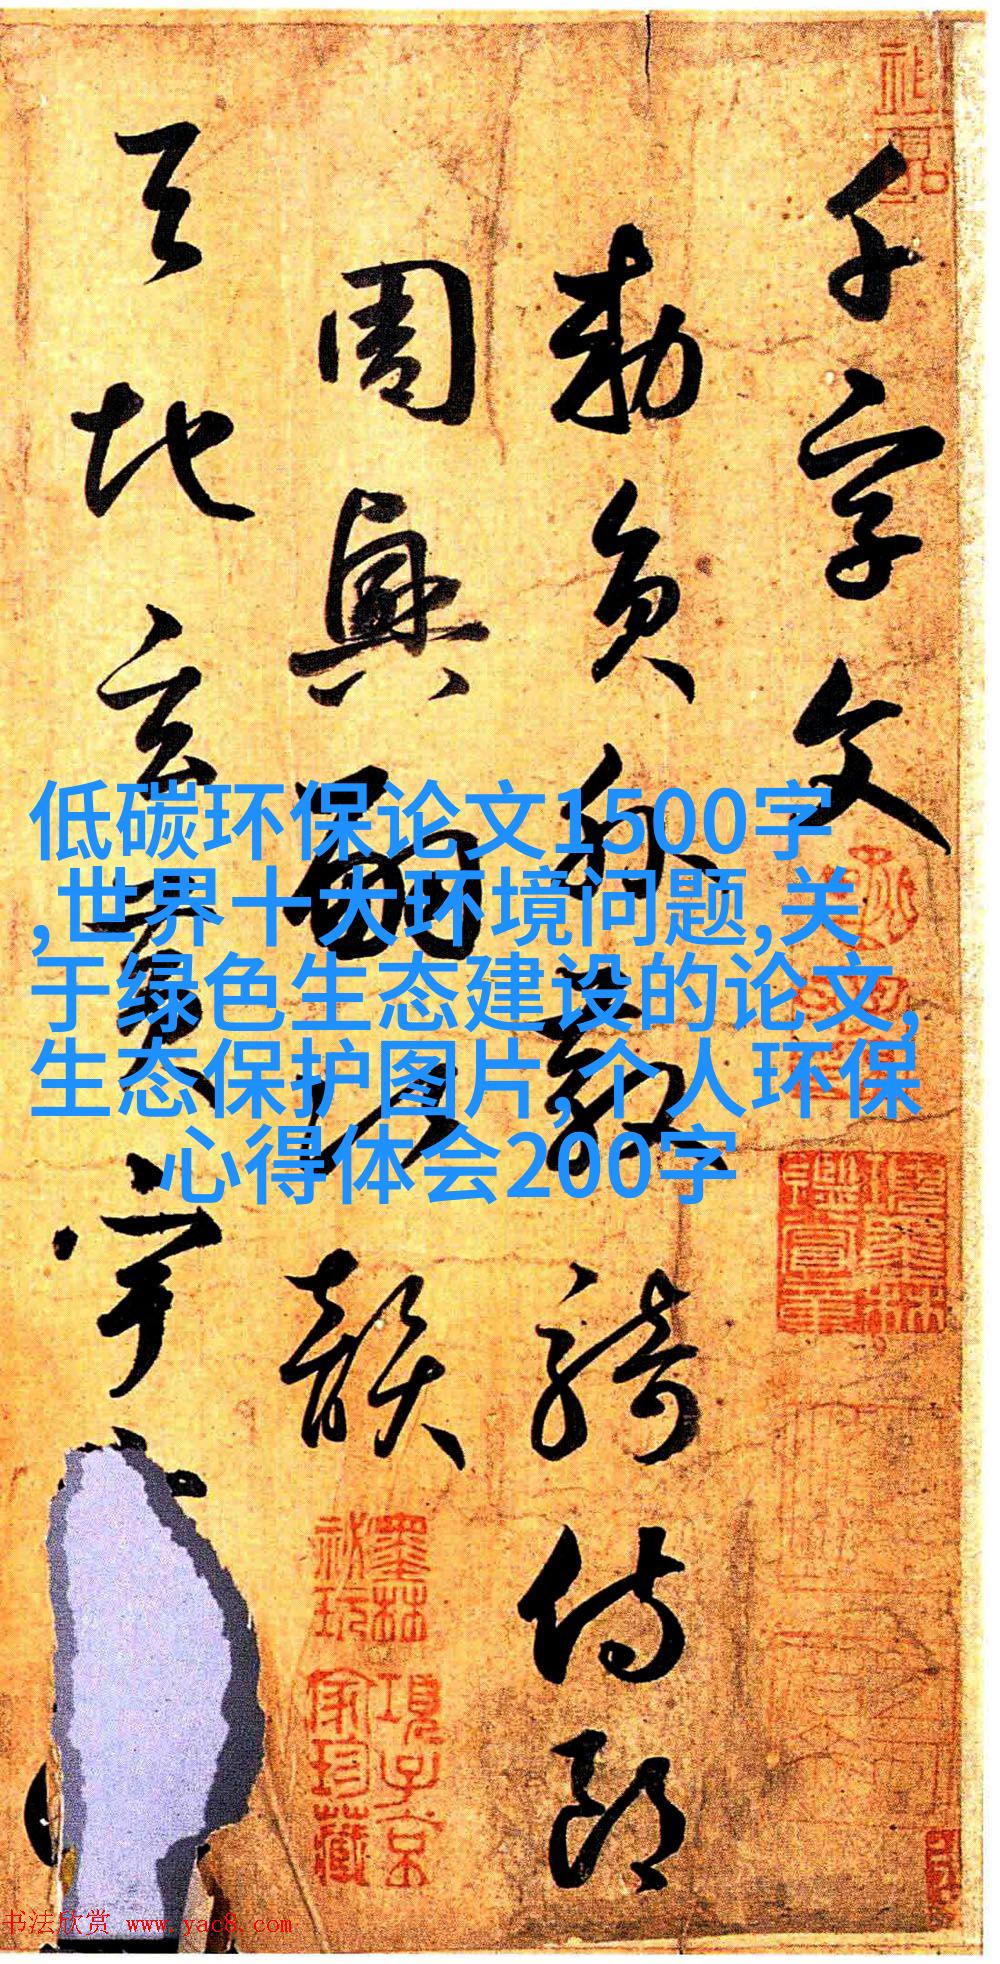 千字文
勅員外散騎侍郎
周興嗣次韻
天地玄黃宇
低碳环保论文1500字
,世界十大环境问题,关
于绿色生态建设的论文,
生态保护图片,个人环保
心得体会200字
墨林秘玩
項子京家珍藏
书法欣赏 www.yac8.com